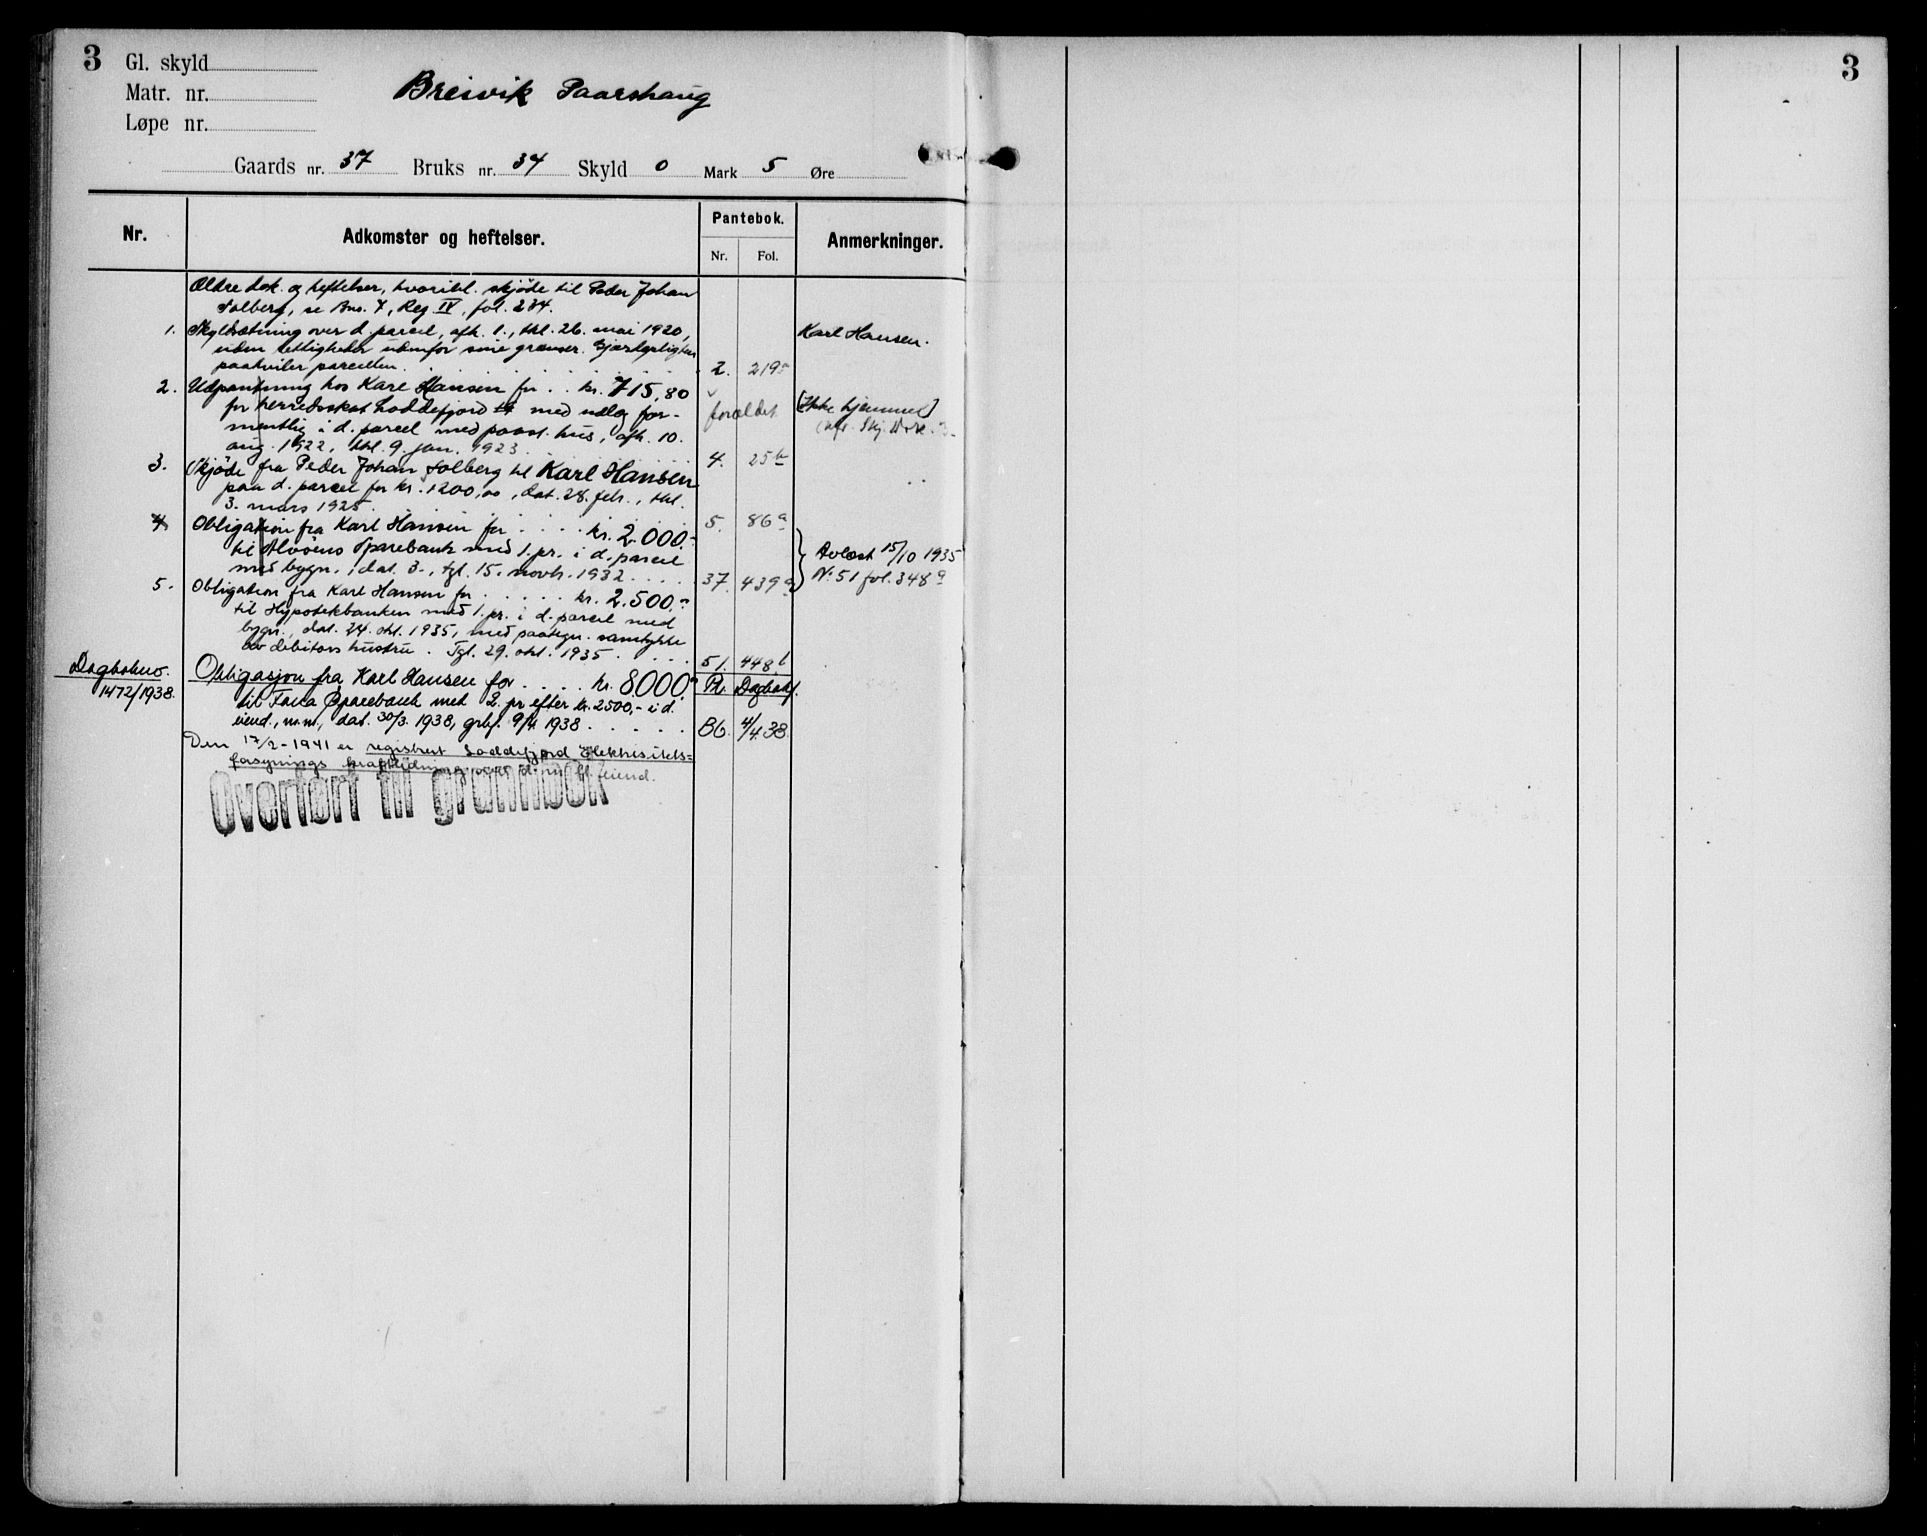 3
3
Gl. skyld
Matr. nr.
Løpe nr.
Breivik Paarshaug
Gaards nr. 37 Bruks nr. 34 Skyld 0 Mark 5 Øre
Nr.
Adkomster og heftelser.
Pantebok.
Nr. Fol.
Anmerkninger.
Ældre dok. og heftelser, hvoribl. skjøde til Peder Johan
Solberg, se Bno. 7, Reg IV, fol. 234.
1. Skyldsætning over d. parcel, afh. 1., thl. 26. mai 1920,
uden rettigheder udenfor sine grænser. Gjærdepligten
paahviler parcellen. 2. 219
Karl Hansen.
2. Udpantning hos Karl Hansen for . . kr. 715,80
for herredsskat Loddefjord med udlæg for-
mentlig i d. parcel med paast. hus, afh. 10.
aug. 1922, thl. 9. jan. 1923. 4. 25 b
forældet
[Ikke hjemmel]
3. Skjøde fra Peder Johan Solberg til Karl Hansen
paa d. parcel for kr. 1200,00, dat. 28. febr., thl.
3. mars 1925. 5. 86 a
4 Obligation fra Karl Hansen for . . . . kr. 2.000.-
til Alvøens Sparebank med 1. pr. i d. parcel
med bygn., dat. 3., tgl. 15. novb. 1932 . . . . 37. 439 a
Avløst 15/10 1935
N: 51 fol. 348 a
5. Obligation fra Karl Hansen for . . . . . kr. 2.500.-
til Hypotekbanken med 1. pr. i d. parcel med
bygn., dat. 24. okt. 1935, med paategn. samtykke
av debitors hustru. Tgl. 29. okt. 1935 . . . . 51. 448 b
Dagboknr.
1472/1938.
Obligasjon fra Karl Hansen for . . . . kr. 8000.- Pb. Dagbokf.
til Fana Sparebank med 2. pr efter kr. 2500,- i d.
eiend., m.m., dat. 30/3 1938, grbf. 9/4 1938 . . . . . 86. 4/4.38.
Den 17/2-1941 er registrert Loddefjord Elektrisitets-
forsynings kraftledning over d. m. fl. eiend.
Overført til grunnbok